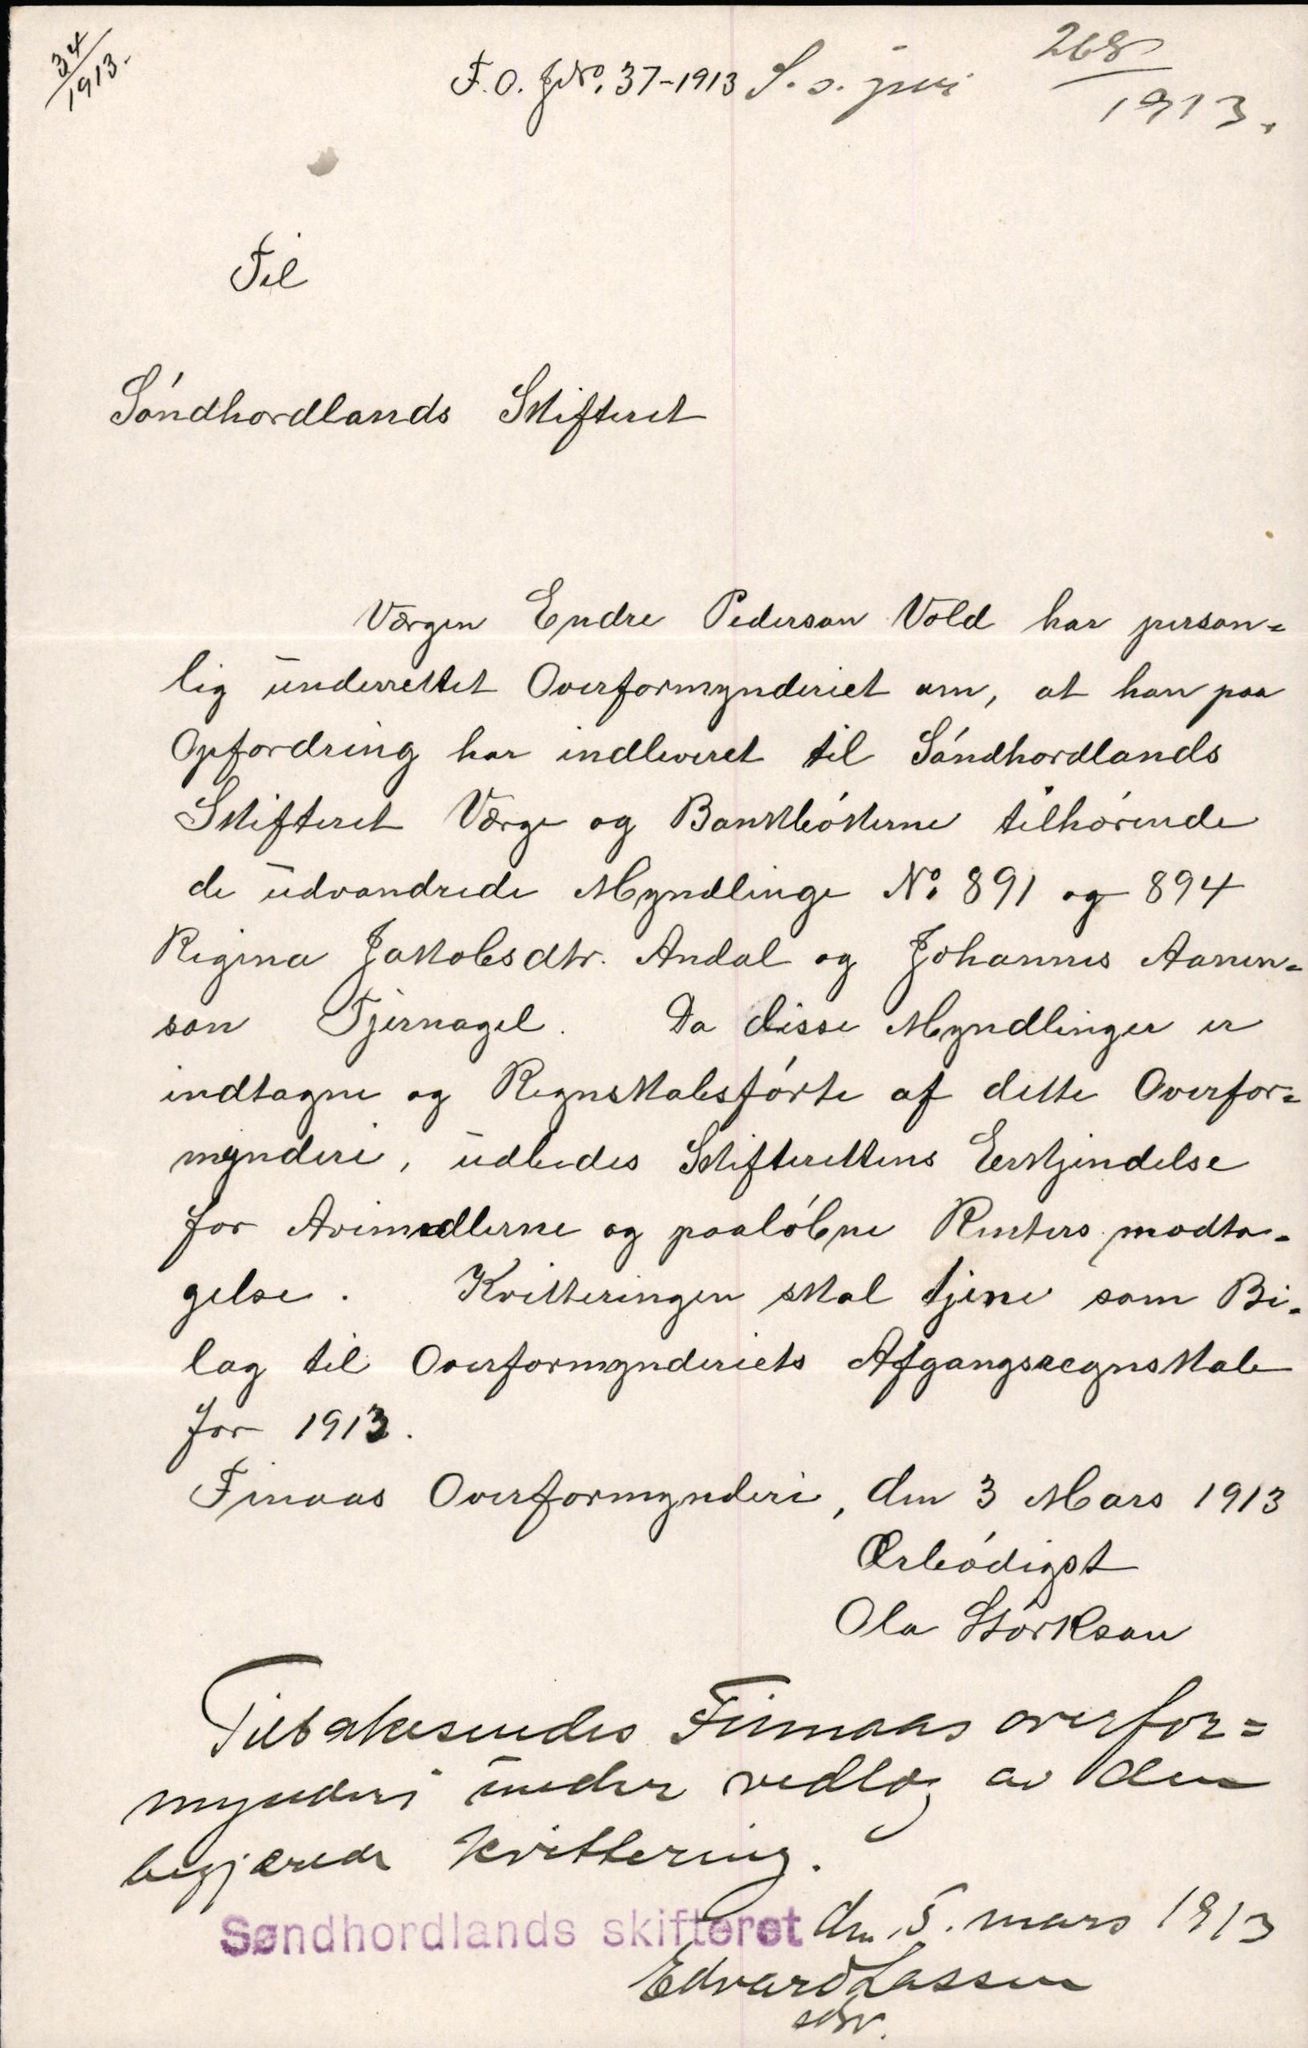 34/1913.
F.O. J.No. 37-1913 S. s. jur
268/1913.
Til
Söndhordlands Skifteret
Værgen Endre Pederson Vold har person=
lig underrettet Overformynderiet om, at han paa
Opfordring har indleveret til Söndhordlands
Skifteret Værge og Bankbökerne tilhørende
de udvandrede Myndlinge No. 891 og 894
Regina Jakobsdtr. Andal og Johannes Aanen=
son Tjernagel. Da disse Myndlinger er
indtagne og Regnskabsförte af dette Overfor=
mynderi, udbedes Skifterettens Eerkjendelse
for Arvimidlerne og paalöbne Renters modta-
gelse. Kvitteringen skal tjene som Bi-
lag til Overformynderiets Afgangsregnskab
for 1913.
Finaas Overformynderi, den 3 Mars 1913
Ærbödigst
Ola Störkson
Tilbakesendes Finnaas overfor=
mynderi under vedlæg av den
begjærede kvittering.
Søndhordlands skifteret den 5. mars 1913
Edvard Lassen